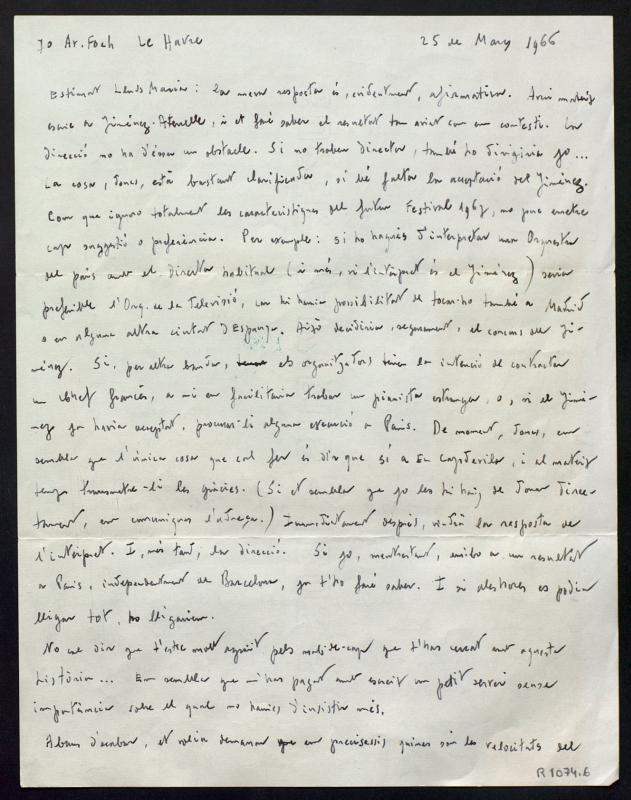 70 Av. Foch Le Havre 25 de Març 1966
Estimat Lluís Maria: la meva resposta és, evidentment, afirmativa. Avui mateix
escric a Jiménez-Atenelle, i et faré saber el resultat tan aviat com em contesti. La
direcció no ha d'ésser un obstacle. Si no troben director, també ho dirigiria jo...
La cosa, doncs, està bastant clarificada, si bé falta la acceptació del Jiménez.
Com que ignoro totalment les característiques del futur Festival 1967, no puc emetre
cap suggestió o preferència. Per exemple: si ho hagués d'interpretar una Orquestra
del país amb el Director habitual (i més, si l'intèrpret és el Jiménez) seria
preferible l'Orq. de la Televisió, car hi hauria possibilitat de tocar-ho també a Madrid
o en alguna altra ciutat d'Espanya. Això decidiria, segurament, el concurs del Ji-
ménez. Si, per altra banda, els organitzadors tenen la intenció de contractar
un chef francès, a mi em facilitaria trobar un pianista estranger, o, si el Jimé-
nez ja havia acceptat, procurar-li alguna execució a Paris. De moment, doncs, em
sembla que l'única cosa que cal fer és dir que sí a En Capdevila, i al mateix
temps transmetre-li les gràcies. (Si et sembla que jo les hi haig de donar direc-
tament, em comuniques l'adreça.) Immediatament després, vindrà la resposta de
l'intèrpret. I, més tard, la direcció. Si jo, mentrestant, arribo a un resultat
a Paris, independentment de Barcelona, ja t'ho faré saber. I si aleshores es podia
lligar tot, ho lligaríem.
No cal dir que t'estic molt agraït pels mals-de-cap que t'has creat amb aquesta
història... Em sembla que m'has pagat amb escreix un petit servei sense
importància sobre el qual no havies d'insistir més.
Abans d'acabar, et volia demanar que em precisessis quines són les velocitats del
R 1074.6